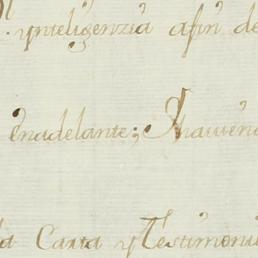 ynteligenzia afin de
enadelante; 
Carta y Testimoni